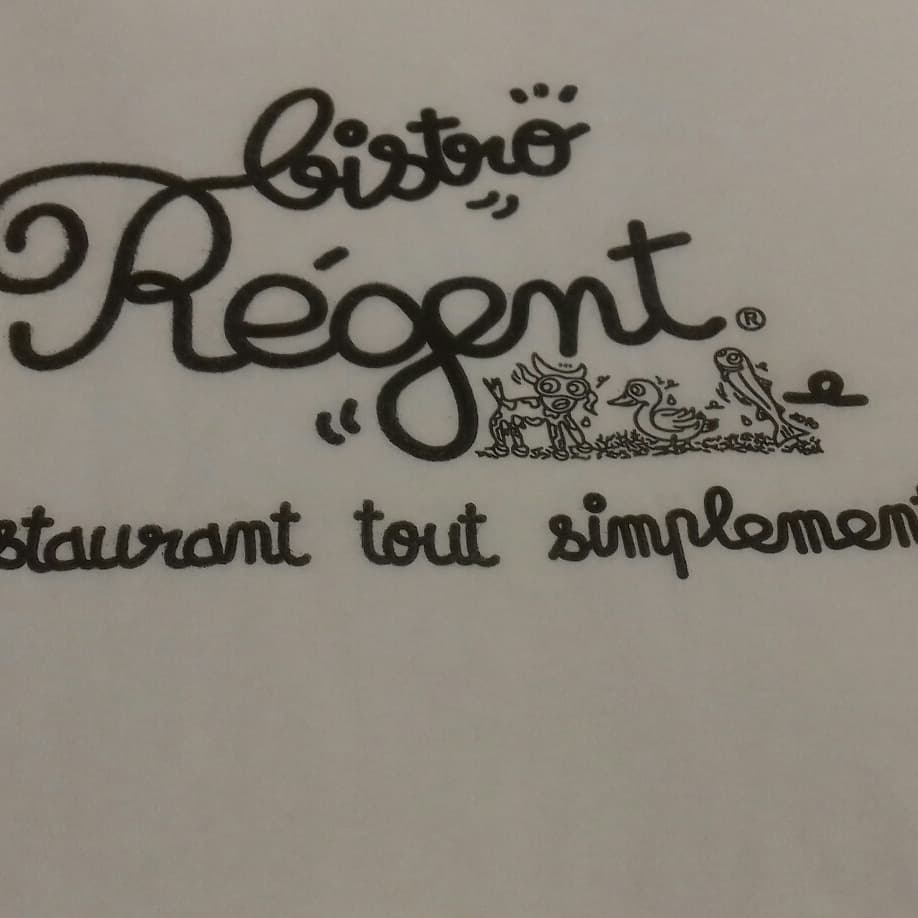 bistro
Régent®
staurant tout simplement